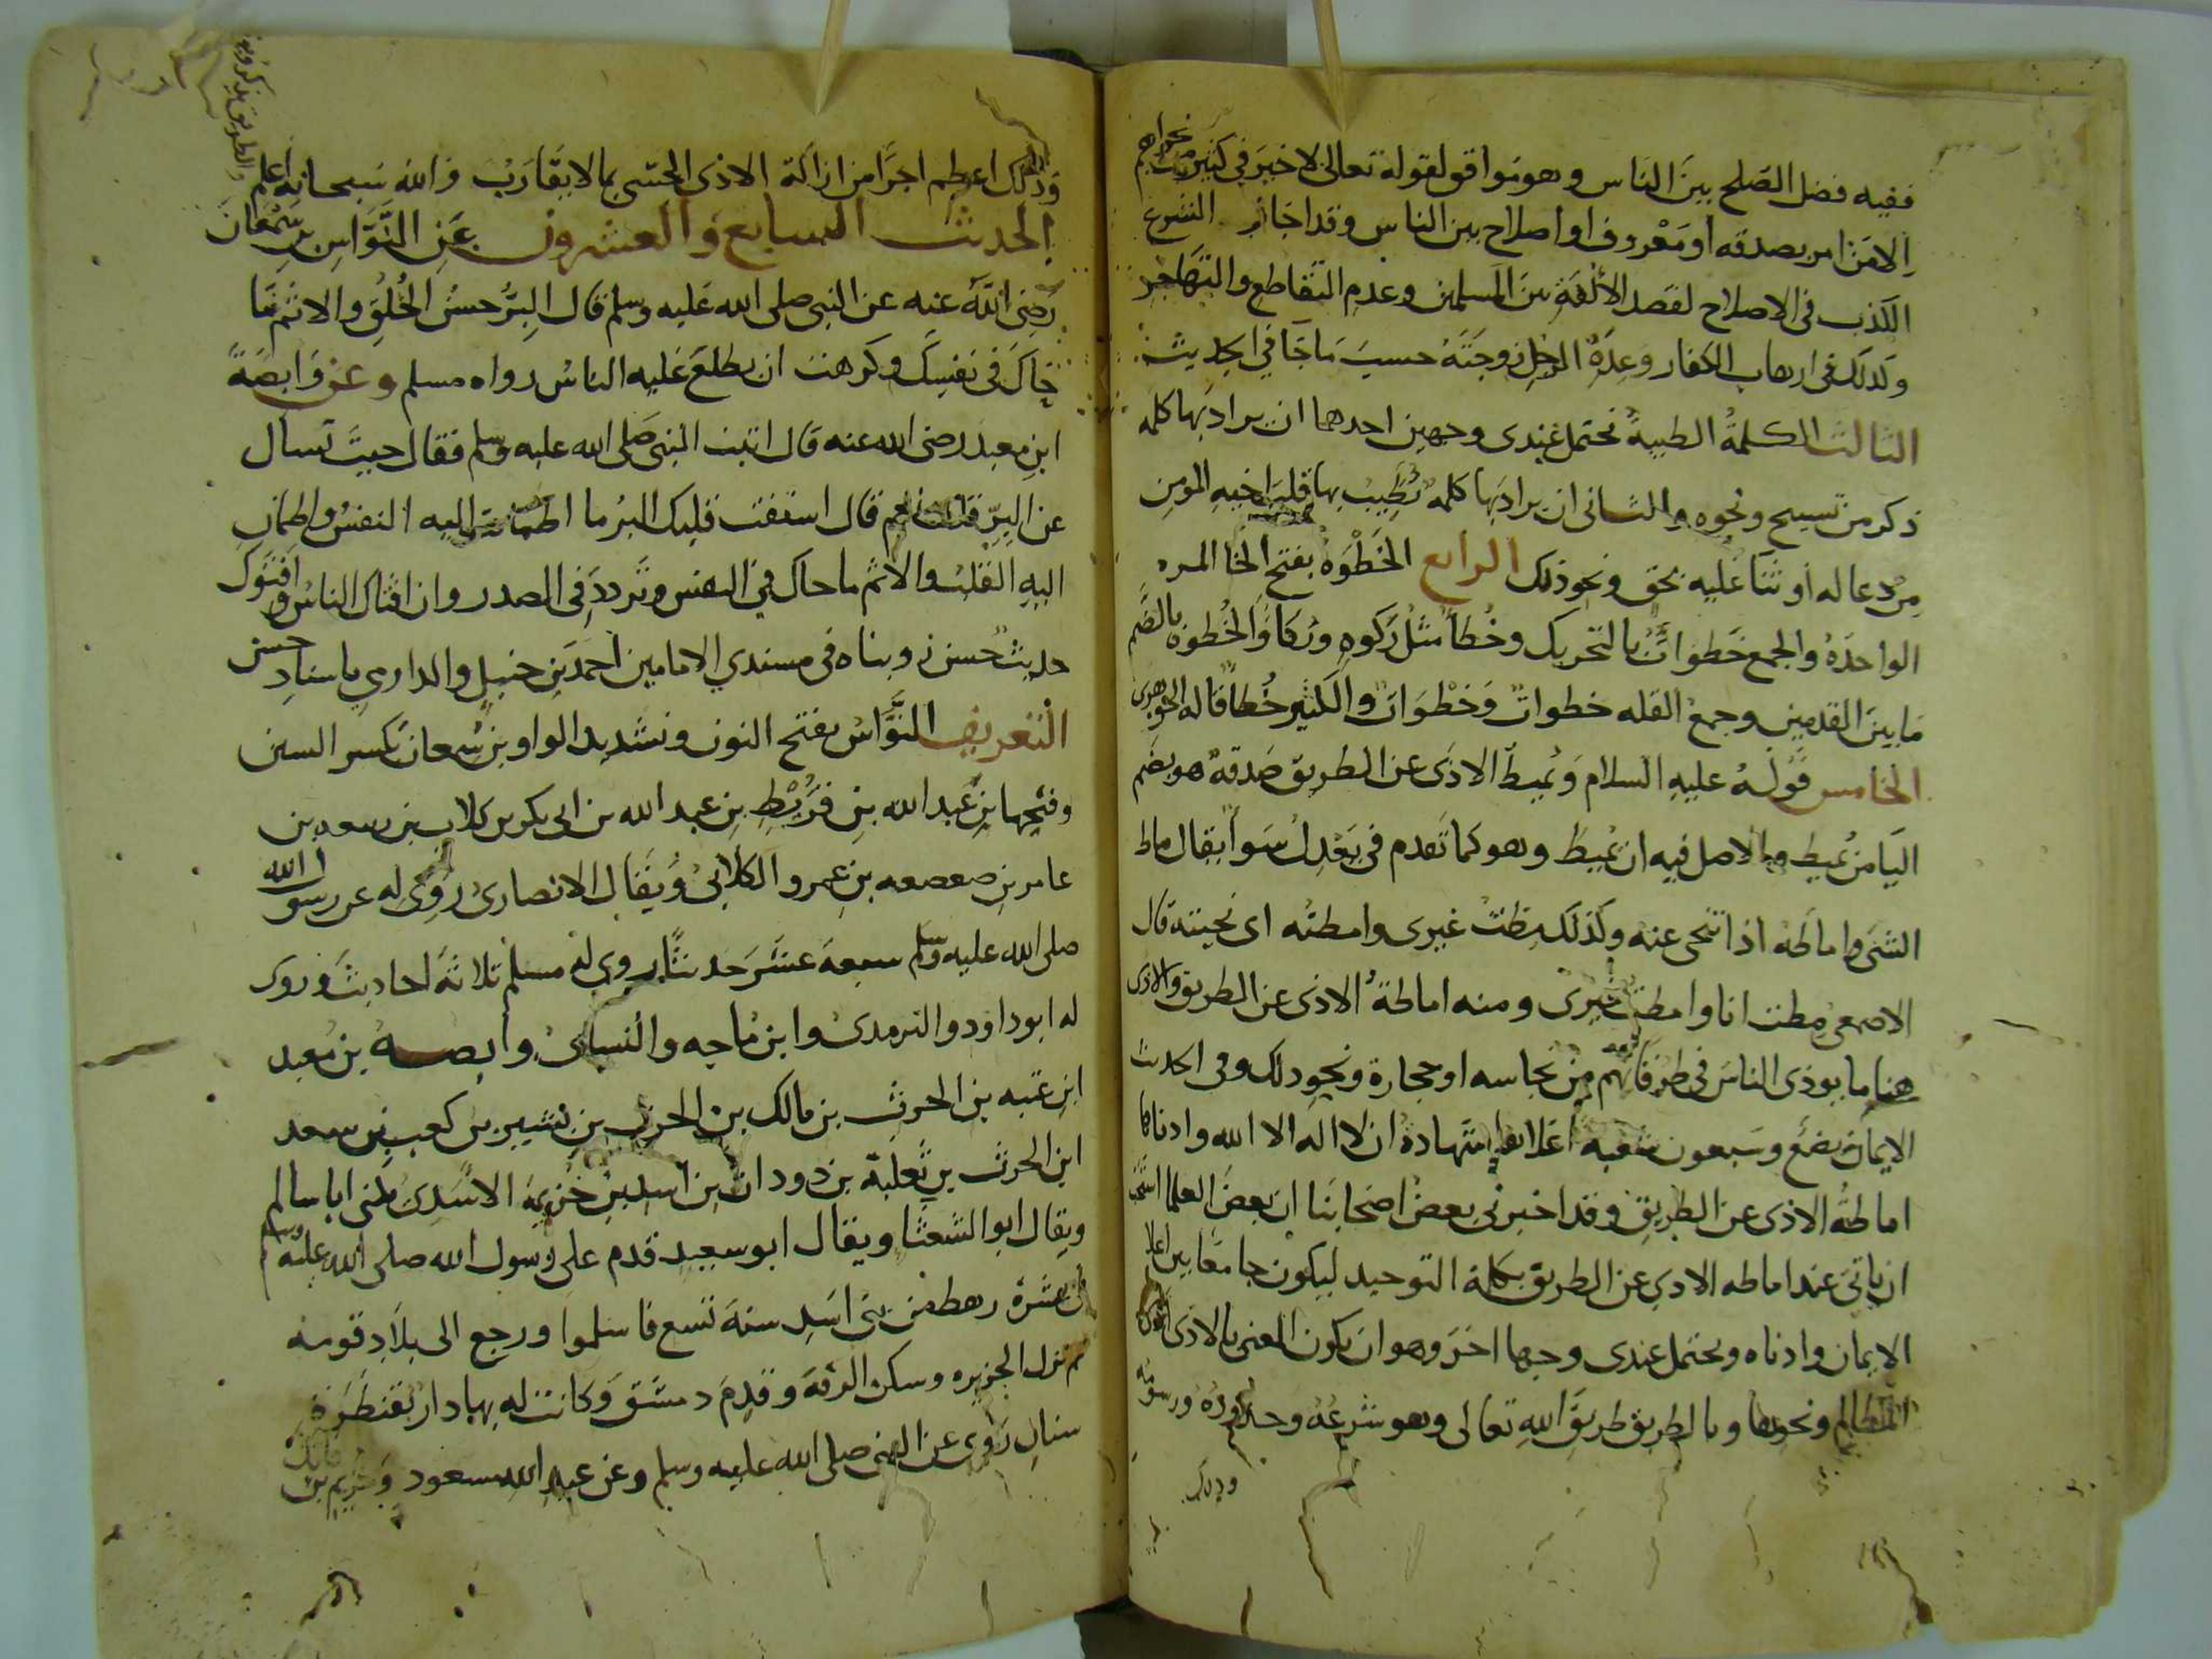 ففيه فضل الصلح بين الناس وهو موافق لقوله تعالى لا خير في كثير من نجواهم
الا من امر بصدقه او معروف او اصلاح بين الناس وقد اجاز الشرع
الكذب في الاصلاح لقصد الألفة بين المسلمين وعدم التقاطع والتهاجر
وكذلك في ارهاب الكفار وعدة الرجل زوجته حسب ما جا في الحديث
الثالث الكلمة الطيبة تحتمل عندي وجهين احدهما ان يراد بها كلمه
ذكر من تسبيح ونحوه والثاني ان يراد بها كلمه تطيب بها قلب اخيه المومن
من دعا له او ثنا عليه بحق ونحو ذلك الرابع الخطوة بفتح الخا المره
الواحدة والجمع خطوات بالتحريك وخطأ مثل ركوه وركا والخطوه بالضم
ما بين القدمين وجمع القله خطوات وخطوات والكثير خطا قاله الجوهري
الخامس قوله عليه السلام وتميط الاذى عن الطريق صدقة هو بضم
اليا من تميط والاصل فيه ان تميط وهو كما تقدم في تعدل سوا يقال ماط
الشى واماطه اذا تنحى عنه وكذلك مطت غيرى وامطته اى نحيته قال
الاصمعي مطت انا وامطت غيرى ومنه اماطة الاذى عن الطريق والاذى
هنا ما يوذى الناس في طرقاتهم من نجاسه او حجارة ونحو ذلك وفي الحديث
الايمان بضع وسبعون شعبه اعلاها شهادة ان لا اله الا الله وادناها
اماطة الاذى عن الطريق وقد اخبرني بعض اصحابنا ان بعض العلما استحب
ان ياتى عند اماطه الاذي عن الطريق بكلمة التوحيد ليكون جامعا بين اعلا
الايمان وادناه ويحتمل عندى وجها اخر وهو ان يكون المعنى بالاذى
المظالم ونحوها وبالطريق طريق الله تعالى وهو شرعه وحدوده ورسومه
وذلك
وذلك اعظم اجرا من ازالة الاذى الحسى بما لا يقارب والله سبحانه اعلم
والطريق يذكر ويو
الحديث السابع والعشرون عن النواس بن سمعان
رضى الله عنه عن النبى صلى الله عليه وسلم قال البر حسن الخلق والاثم ما
حاك في نفسك وكرهت ان يطلع عليه الناس رواه مسلم وعن وابصة
ابن معبد رضى الله عنه قال اتيت النبى صلى الله عليه وسلم فقال جيت تسال
عن البر قلت نعم قال استفت قلبك البر ما اطمانت اليه النفس واطمان
اليه القلب والاثم ما حاك في النفس وتردد في الصدر وان افتاك الناس وافتوك
حديث حسن رويناه في مسندي الامامين احمد بن حنبل والدارمي باسناد حسن
التعريف النواس بفتح النون وتشديد الواو بن سمعان بكسر السين
وفتحها بن عبد الله بن قريط بن عبد الله بن ابى بكر بن كلاب بن سعد بن
عامر بن صعصعه بن عمرو الكلابى ويقال الانصارى روى له عن رسول الله
صلى الله عليه وسلم سبعة عشر حديثا روى له مسلم ثلاثة احاديث وروى
له ابو داود والترمدى وابن ماجه والنساى وابصة بن معبد
ابن عتبه بن الحرث بن مالك بن الحرث بن بشير بن كعب بن سعد
ابن الحرث بن ثعلبة بن دودان بن اسد بن خزيمة الاسدى يكنى ابا سالم
ويقال ابو الشعثا ويقال ابو سعيد قدم على رسول الله صلى الله عليه وسلم
في عشرة رهط من بنى اسد سنة تسع فاسلموا ورجع الى بلاد قومه
ثم نزل الجزيره وسكن الرقة وقدم دمشق وكانت له بها دار بقنطرة
سنان روى عن النبى صلى الله عليه وسلم وعن عبد الله مسعود وخريم بن